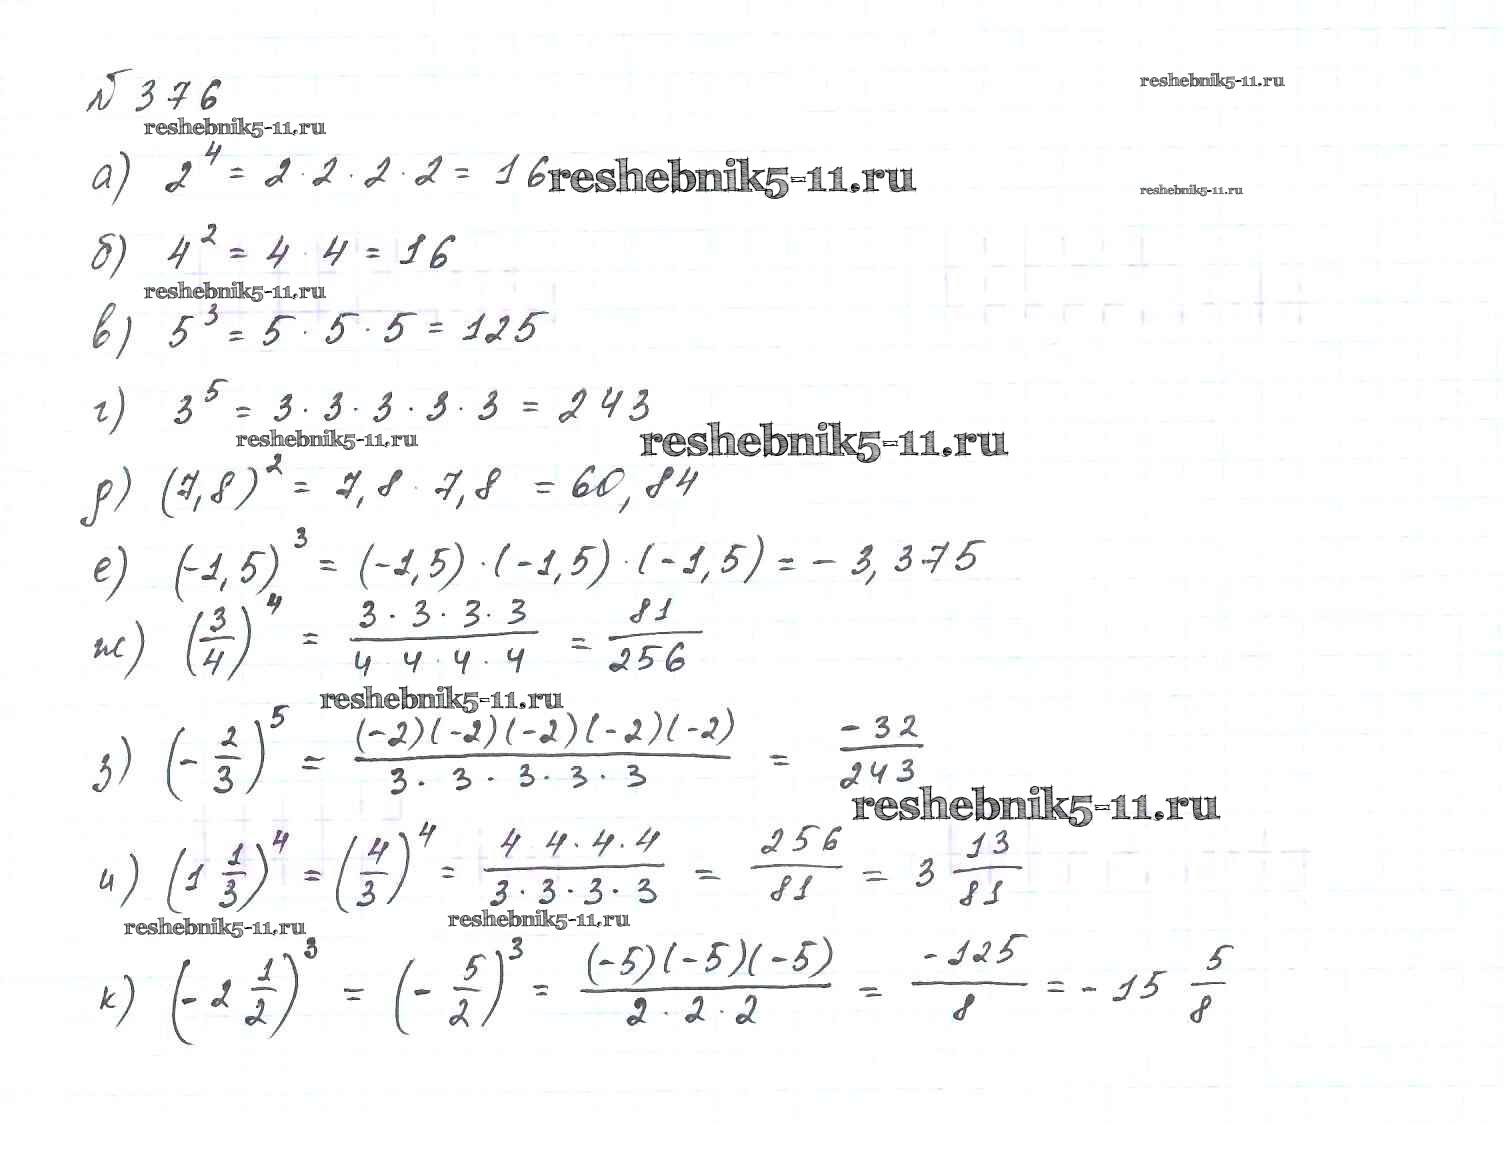 № 376
reshebnik5-11.ru
reshebnik5-11.ru
а) 2^4 = 2 · 2 · 2 · 2 = 16
reshebnik5-11.ru
reshebnik5-11.ru
б) 4^2 = 4 · 4 = 16
reshebnik5-11.ru
в) 5^3 = 5 · 5 · 5 = 125
г) 3^5 = 3 · 3 · 3 · 3 · 3 = 243
reshebnik5-11.ru
reshebnik5-11.ru
д) (7,8)^2 = 7,8 · 7,8 = 60,84
е) (-1,5)^3 = (-1,5) · (-1,5) · (-1,5) = - 3,375
ж) (3/4)^4 = (3 · 3 · 3 · 3)/(4 · 4 · 4 · 4) = 81/256
reshebnik5-11.ru
з) (- 2/3)^5 = ((-2)(-2)(-2)(-2)(-2))/(3 · 3 · 3 · 3 · 3) = -32/243
reshebnik5-11.ru
и) (1 1/3)^4 = (4/3)^4 = (4 · 4 · 4 · 4)/(3 · 3 · 3 · 3) = 256/81 = 3 13/81
reshebnik5-11.ru
reshebnik5-11.ru
к) (- 2 1/2)^3 = (- 5/2)^3 = ((-5)(-5)(-5))/(2 · 2 · 2) = -125/8 = - 15 5/8